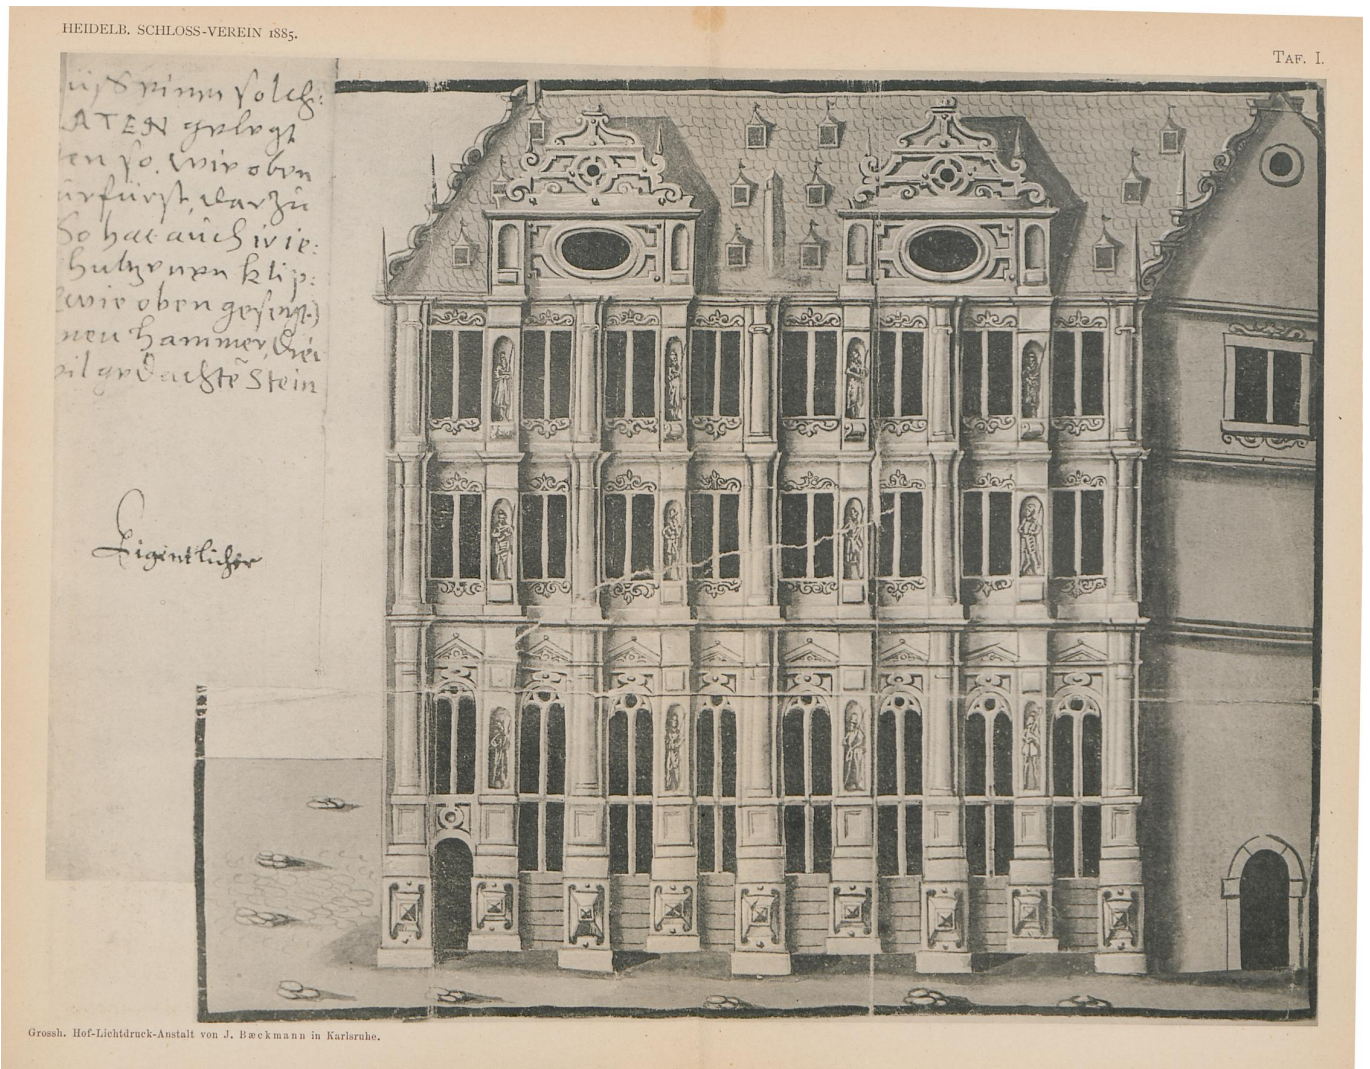 HEIDELB. SCHLOSS-VEREIN 1885.
TAF. I.
solch:
ATEN gelegt
en so, wie oben
urfürst, darzu
So hat auch wie:
hultzenen klip:
wie oben gesetzt)
neu hammer, drei
gedachtē Stein
Eigentlicher
Grossh. Hof-Lichtdruck-Anstalt von J. Bæckmann in Karlsruhe.